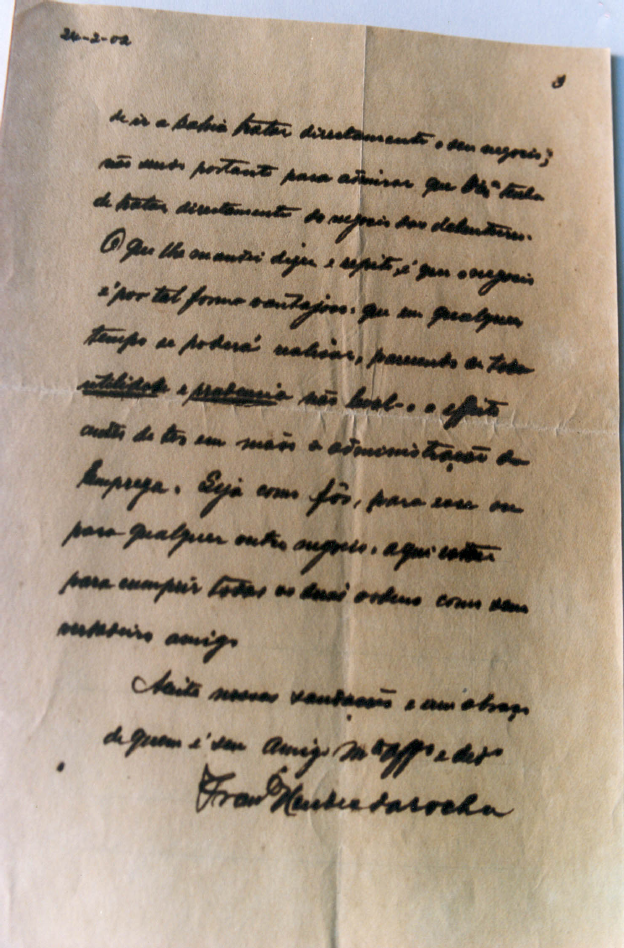 24-2-02
de ir a Bahia tratar directamente o seu negocio;
não será portanto para admirar que V. Exª tenha
de tratar directamente do negocio dos debentures.
O que lhe mandei dizer e repito, é que o negocio
é por tal forma vantajoso que em qualquer
tempo se poderá realisar, parecendo de toda
utilidade e não leval-o a effeito
antes de ter em mãos a administração da
Empreza. Seja como fôr, para esse ou
para qualquer outro negocio, aqui estou
para cumprir todas as suas ordens como seu
verdadeiro amigo
Aceite nossas saudações e um abraço
de quem é seu amigo
Franco Mendes da Rocha